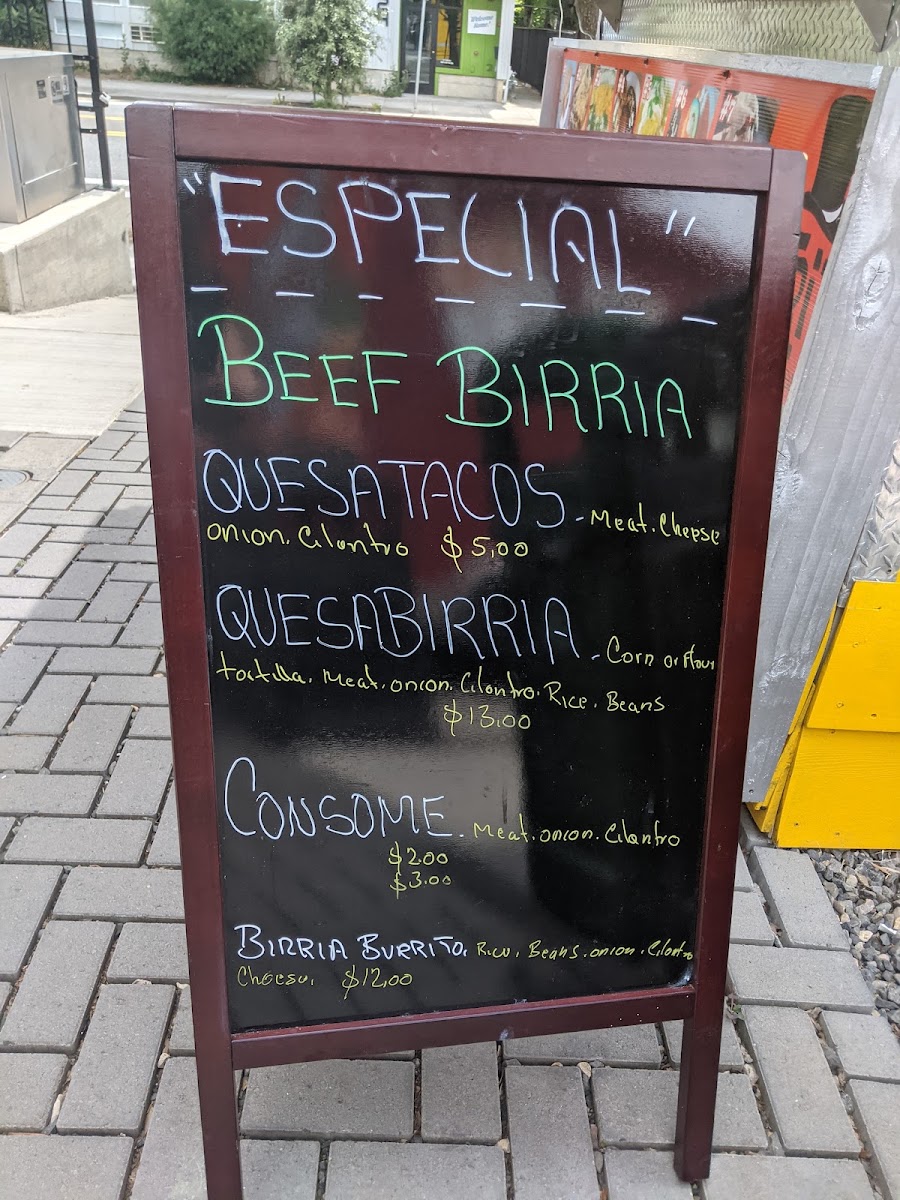 "ESPECIAL"
BEEF BIRRIA
QUESATACOS - Meat. Cheese
onion. Cilontro $5,00
QUESABIRRIA - Corn or Flour
tortilla. Meat. onion. Cilontro. Rice. Beans
$13.00
CONSOME. Meat. onion. Cilantro
$2.00
$3.00
BIRRIA BURRITO. Rice, Beans. onion. Cilontro
Cheese, $12,00